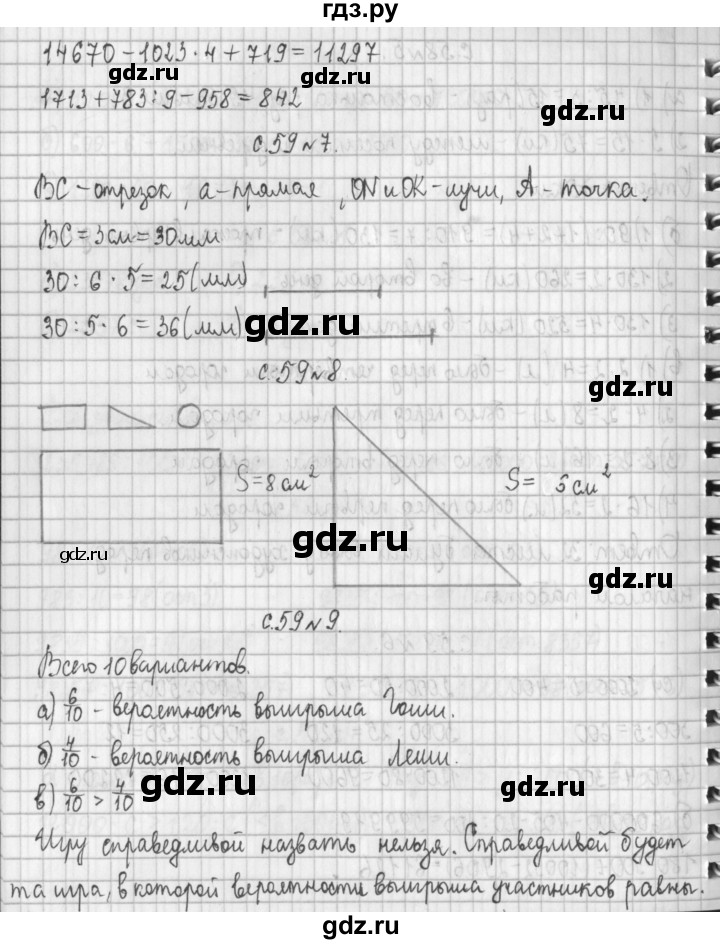 гдз.ру
14670 - 1023 · 4 + 719 = 11297
gdz.ru
gdz.ru
1713 + 783 : 9 - 958 = 842
с.59 №7.
ВС - отрезок, а - прямая, ON и OK - лучи, А - точка.
ВС = 3 см = 30 мм
30 : 6 · 5 = 25 (мм)
30 : 5 · 6 = 36 (мм)
gdz.ru
gdz.ru
с.59 №8.
gdz.ru
S = 8 см²
S = 6 см²
gdz.ru
gdz.ru
gdz.ru
с.59 №9.
Всего 10 вариантов.
а) 6/10 - вероятность выигрыша Гоши.
б) 4/10 - вероятность выигрыша Леши.
в) 6/10 > 4/10
gdz.ru
gdz.ru
Игру справедливой назвать нельзя. Справедливой будет
та игра, в которой вероятности выигрыша участников равны.
gdz.ru